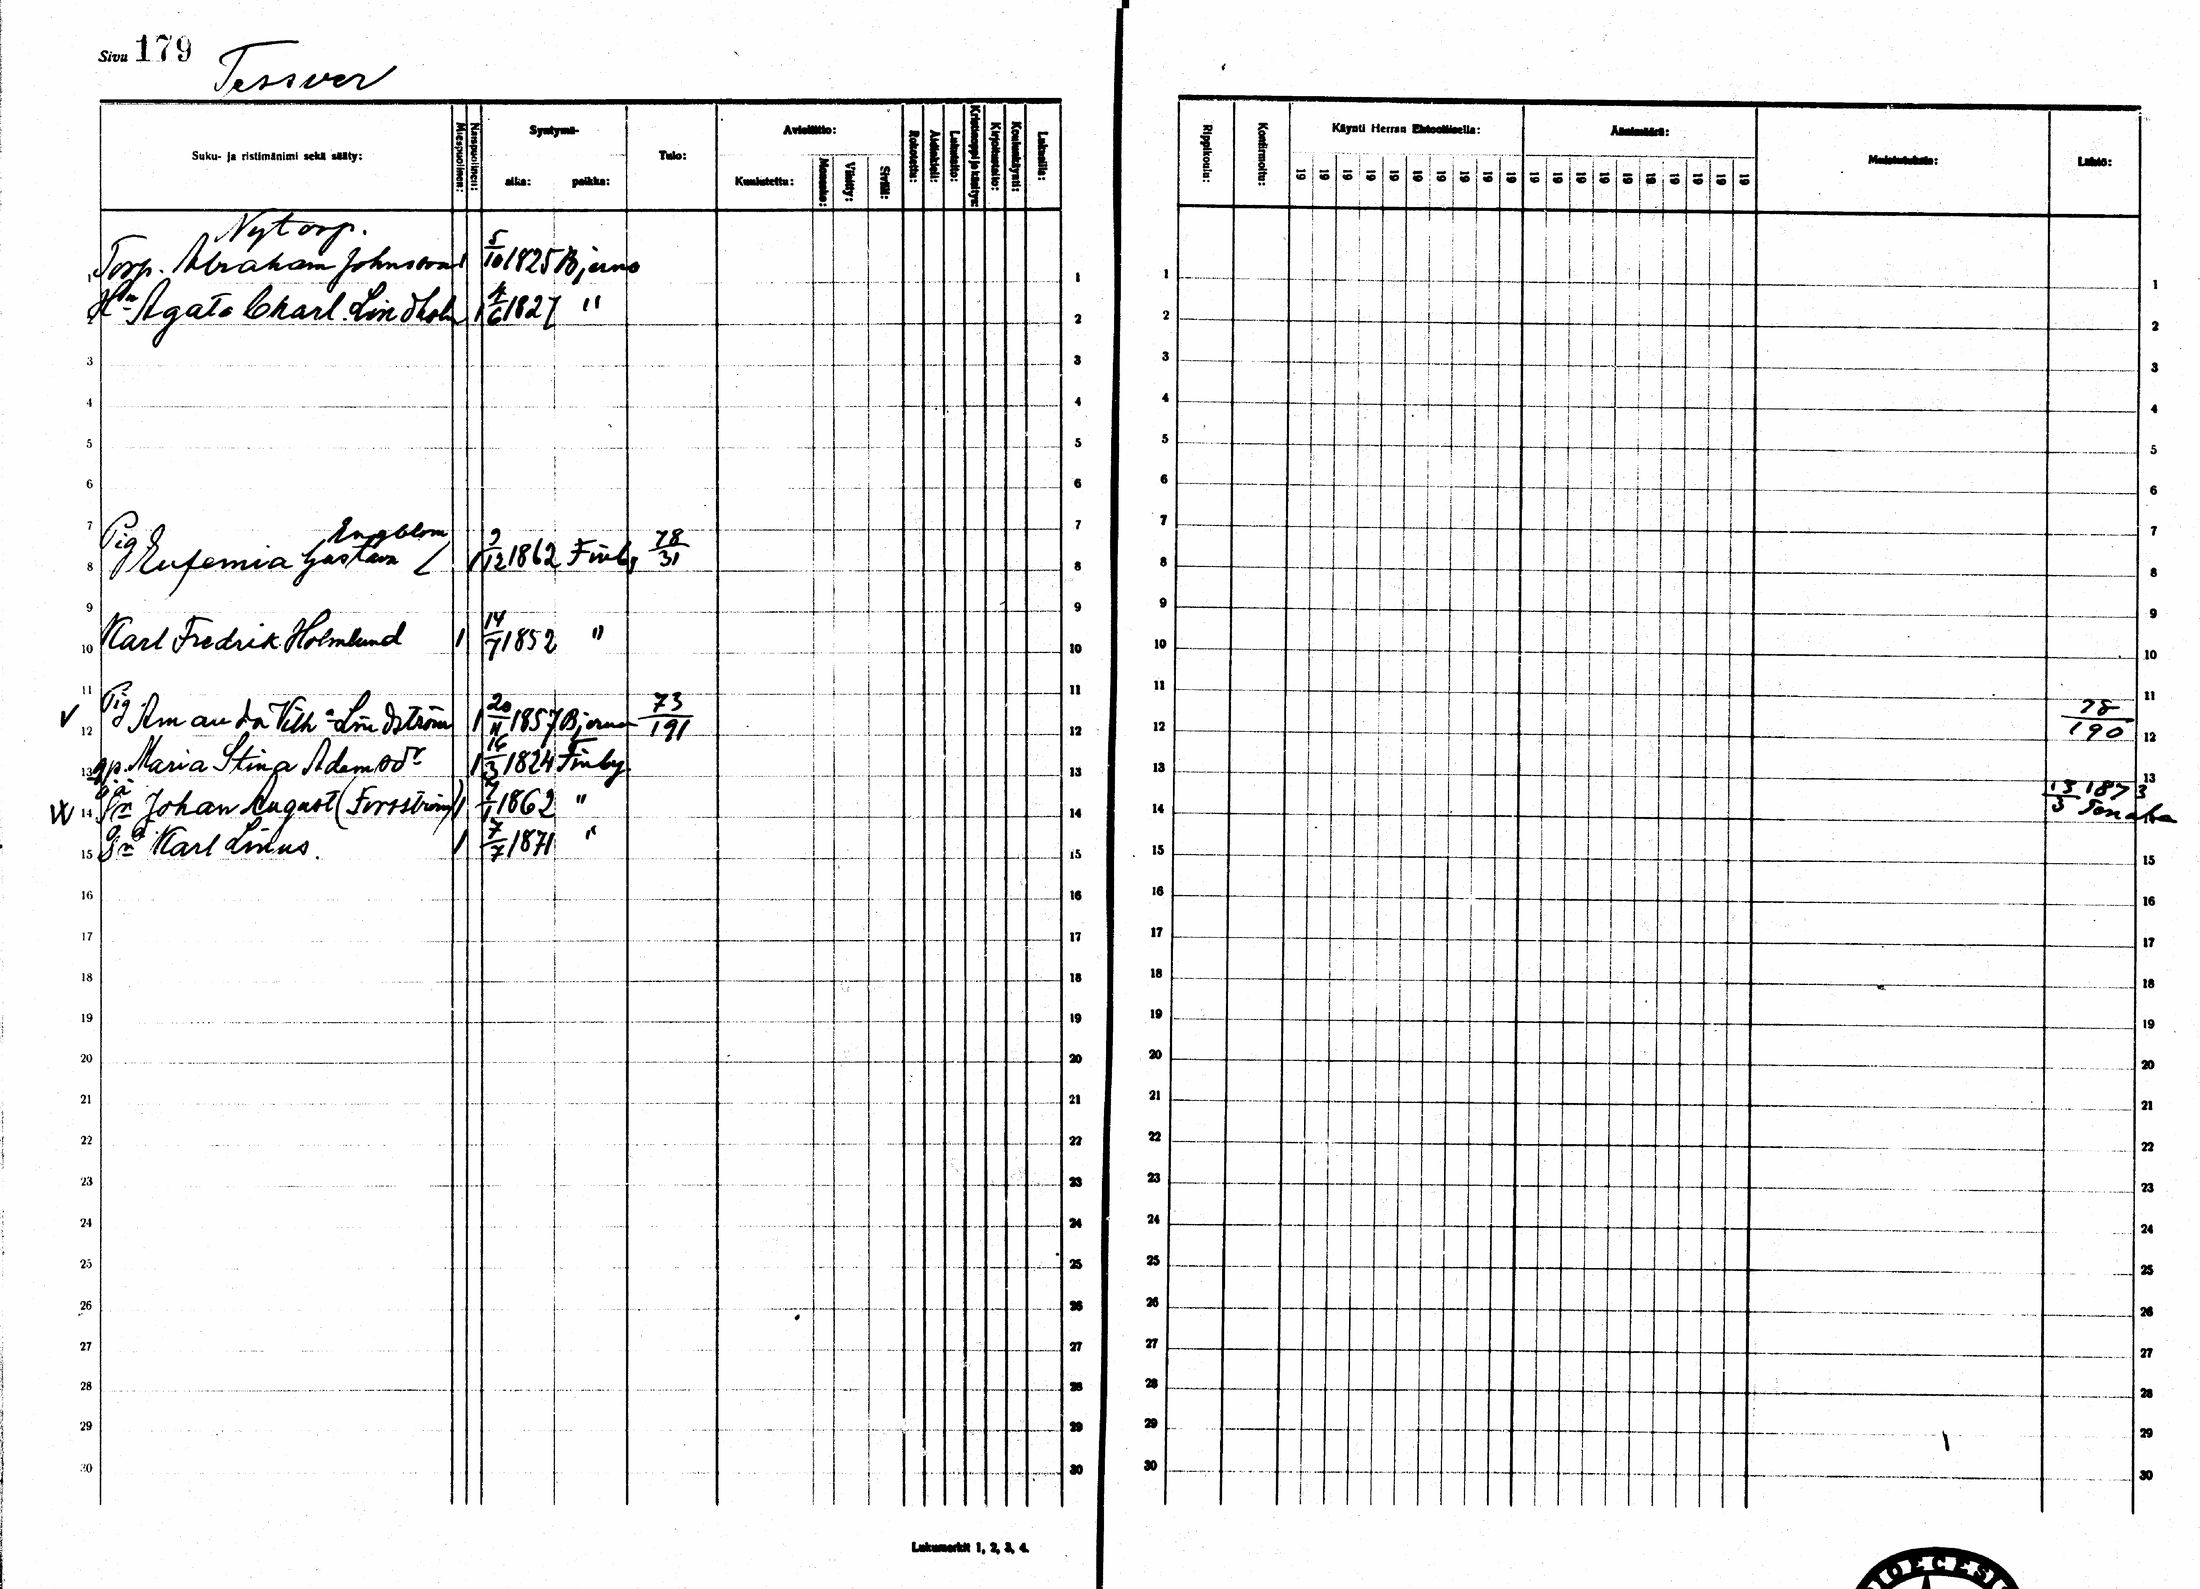 Sivu 179
Tessver
Suku- ja ristimänimi sekä sääty: Miespuolinen: Naispuolinen: Syntymä- aika: paikka: Tulo: Avioliitto: Kuulutettu: Vihitty: Rokotettu: Lukutaito: Kristinoppi ja käsitys: Kirjoitustaito: Koulunkäynti: Rippikoulu: Konfirmoitu: Käynti Herran Ehtoollisella: 19 19 19 19 19 19 19 19 19 19 19 19 19 19 19 19 19 19 19 19 Muistutuksia: Lähtö:
Nytorp.
1 Torp. Abraham Johnsson 1 5/10 1825 Bjerno 1 1 1
2 Hu Agata Charl. Lindholm 1 4/6 1827 " 2 2 2
3 3 3 3
4 4 4 4
5 5 5 5
6 6 6 6
7 Engblom 7 7 7
8 Pig Eufemia Gustava 1 2/12 1862 Finby 78/31 8 8 8
9 9 9 9
10 Karl Fredrik Holmlund 1 14/7 1852 " 10 10 10
11 11 11 11
12 Pig. Amanda Vilha Lindström 1 20/11 1857 Bjerno 73/191 12 12 78/190 12
13 Maria Stina Adamsdr 1 16/3 1824 Finby. 13 13 13
14 Johan August (Forsström) 1 1862 " 14 14 13/3 1873 14
15 Karl Linus. 1 7/7 1871 " 15 15 15
16 16 16 16
17 17 17 17
18 18 18 18
19 19 19 19
20 20 20 20
21 21 21 21
22 22 22 22
23 23 23 23
24 24 24 24
25 25 25 25
26 26 26 26
27 27 27 27
28 28 28 28
29 29 29 29
30 30 30 30
Lukumerkit 1, 2, 3, 4.